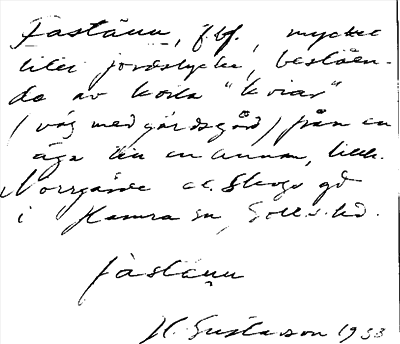 Fastänn, f.bf., mycket
litet jordstycke, beståen-
de av korta "kviar"
(väg med gärdsgård) från en
äga till en annan, tillh.
Norrgårde o. Skogs gd
i Hamra sn, Gotl. s. hd.
fàstänn
H. Gustavson 1933